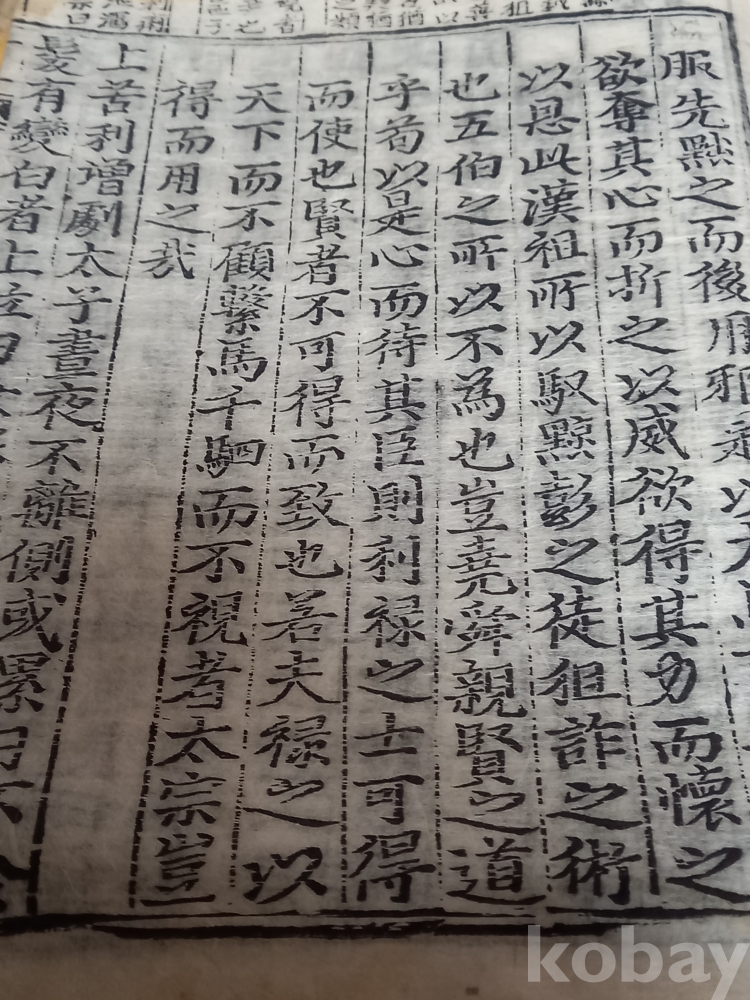 服先黜之而後用邪
欲奪其心而折之以威欲得其力而懷之
以恩此漢祖所以馭黥彭之徒狙詐之術
也五伯之所以不為也豈堯舜親賢之道
乎苟以是心而待其臣則利祿之士可得
而使也賢者不可得而致也若夫祿之以
天下而不顧繫馬千駟而不視者太宗豈
得而用之哉
上苦利增劇太子晝夜不離側或累日不
髮有變白者上泣曰
kobay